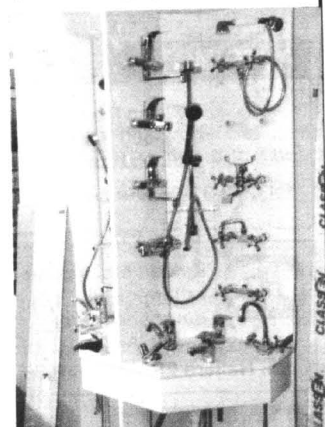 CLASSEN
CLASSEN
CLASSEN